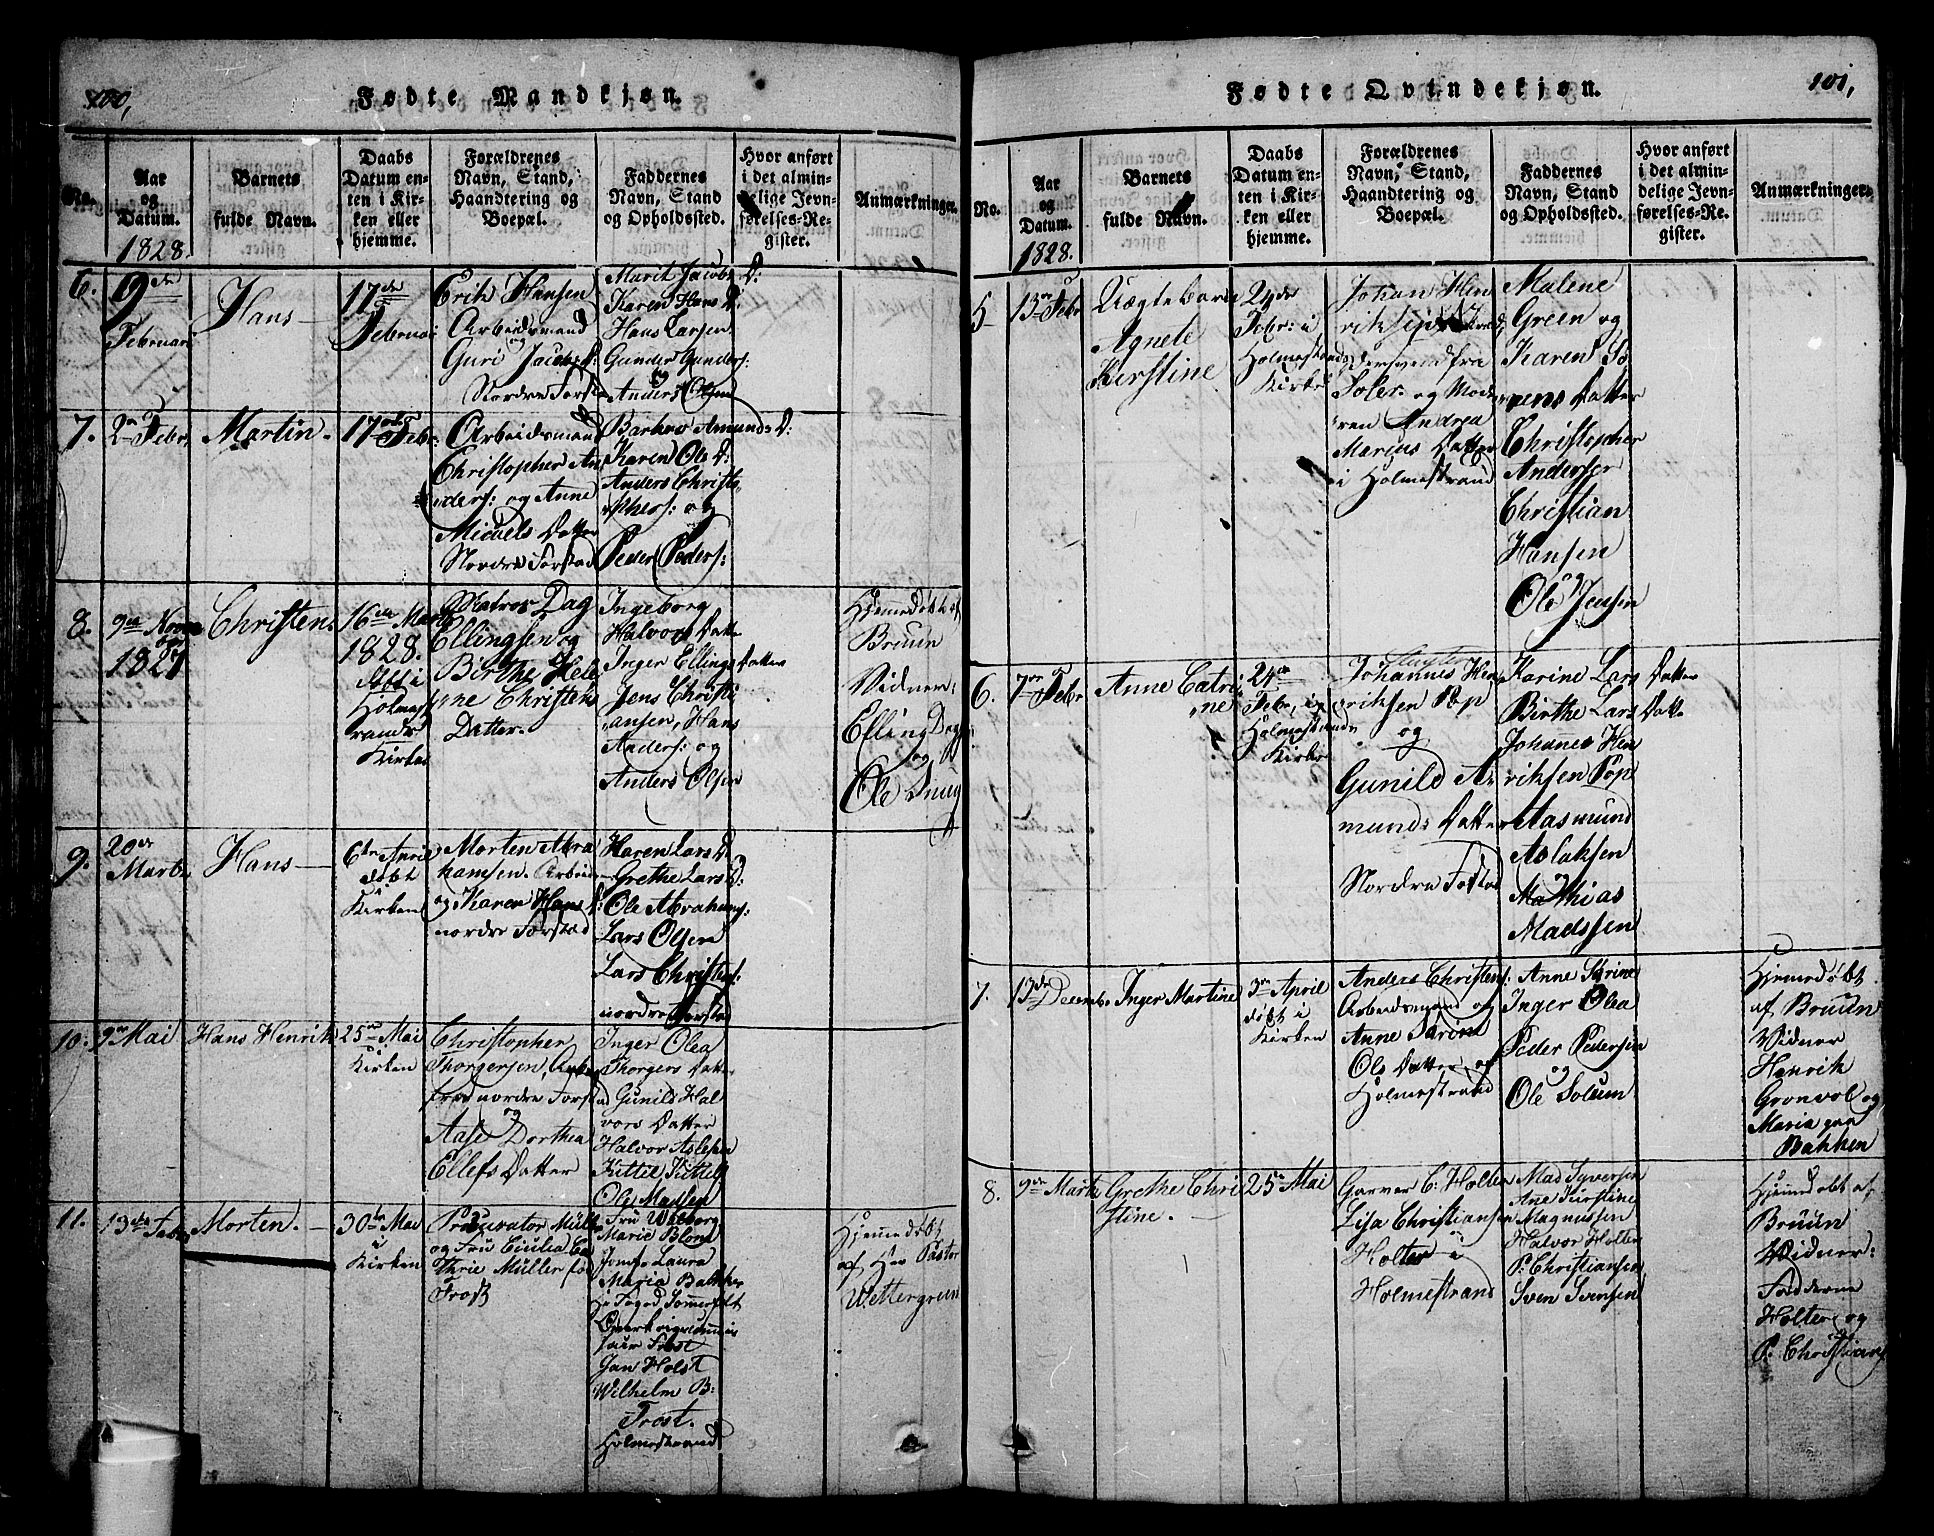 100,
Fødte Mandkjøn.
No.
Aar
og
Datum.
1828.
Barnets
fulde Navn.
Daabs
Datum en-
ten i Kir-
ken eller
hjemme.
Forældrenes
Navn, Stand,
Haandtering og
Boepæl.
Faddernes
Navn, Stand
og Opholdssted.
Hvor anført
i det almin-
delige Jevn-
førelses-Re-
gister.
Anmærkninger.
6.
9de
Februari
Hans
17de
Februari
Erik Hansen
Arbeidsmand
og
Guri Jacobs D:
Nordre Forsta
Marit Jacobs D:
Karen Hans D:
Hans Larsen
Gunder Gunders:
og
Anders Olsen
7.
2n Febr,
Martin.
17de Febr.
Arbeidsmand
Christopher An
ders: og Anne
Micaels Datter
Nordre Forstad
Amunds D:
Karen Ols D:
Anders Christo
phers: og
Peder Peders:
8.
9de
1827
Christen
16de Marts
1828.
døbt i
Holmest
rands
Kirke
Matros Dag
Ellingsen og
Birthe Hele
ne Christens
Datter.
Ingeborg
Halvors Datte
Inger Ellings Datter
Jens Christi
ansen, Hans
Anders: og
Anders Olsen
Hjemedøbt af
Bruun
Vidner,
Elling Dag
og
Ole
9.
20de
Marts
Hans
6te April
døbt
i
Kirken
Morten Abra
hamsen. Arbeid
og Karen Hans D:
nordre Forstad
Karen Lars D:
Grethe Lars D:
Ole Abrahams:
Lars Olsen
Lars Christens:
nordre Forstad
10.
9de Mai
Hans Henrik
25de Mai
Kirken
Christopher
Thorgersen, Arbe
nordre Forstad
og
Aase Dorthea
Ellefs Datter
Inger Olea
Thorgers Datte
Gunild Hal
vors Datter
Halvor Aslesen
Kittil Kittils
Ole Madsen
11.
13de Febr
Morten.
30te Mai
i
Kirken
Procurator Müll
og Fru Cicilia Ca
thrie Müller fød
Frost
Fru Walborg
Marie Blom
Jomfr Laura
Maria Bakke
Hr Foged Sommerfelt
Frost
Jan Holst
Wilhelm B:
Frost.
Holmestrand
Hjemmedøbt
af Her Pastor
Wettergreen
101,
Fødte Qvindekjøn.
No.
Aar
og
Datum.
1828.
Barnets
fulde Navn.
Daabs
Datum en-
ten i Kir-
ken eller
hjemme.
Forældrenes
Navn, Stand,
Haandtering og
Boepæl.
Faddernes
Navn, Stand
og Opholdssted.
Hvor anført
i det almin-
delige Jevn-
førelses-Re-
gister.
Anmærkninger.
5
13de Febr
Uægtebarn
Agnete
Kerstine
24de
Febr: i
Holmestrands
Kirke
Johan Hen
fra
og Mode
ren Andrea
Marcus Datter
i Holmestrand
Malene
Green og
Karen Sø
rens Datter
Christopher
Andersen
Christian
Hansen
og
Ole Jensen
6.
7de Febr
Anne Catri
ne
24de
Febr, i
Holmestrands
Kirke
Johannes Hen
riksen Pop
og
Gunild A
munds Datter
Nordre Forstad
Karine Lars Datter
Birthe Lars Datte
Johanes Hen
riksen Pop
Aasmund
Aslaksen
og
Mathias
Madssen
7.
13de Decembr
Inger Martine
3de April
døbt i
Kirken
Anders Christens:
Arbeidsmand og
Anne
Ols Datter af
Holmestrand
Anne Karine
Inger Olea
Peder Pedersen
og
Ole Solum
Hjemedøbt
af Bruun
Vidner
Henrik
Gronvol og
Maria paa
Bakken
8.
9de Marts
Grethe Chri
stine.
25de Mai
Garver C: Holter
Lisa Christiansen
Holter i
Holmestrand
Mad Syversen
Ane Kirstine
Magnussen
Halvor Holter
P: Christiansen
Sven Svensen
Hjemdøbt af
Bruun
Widner:
Fadderne
Holter og
P. Christians